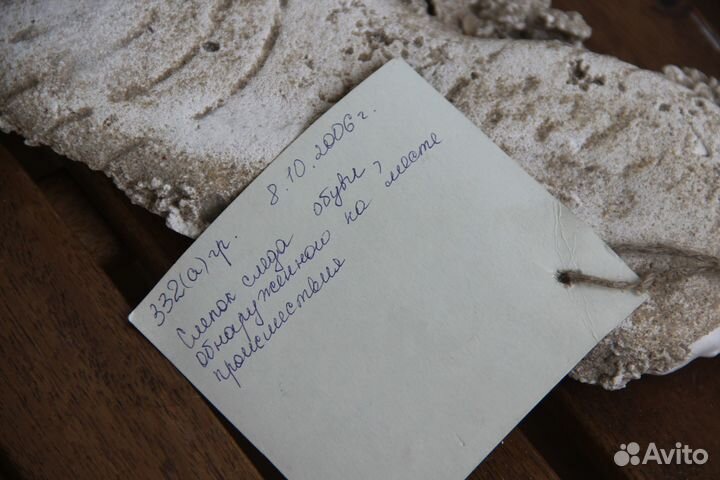 332(а) гр. 8.10.2006 г.
Слепок следа обуви,
обнаруженного на месте
происшествия
Avito